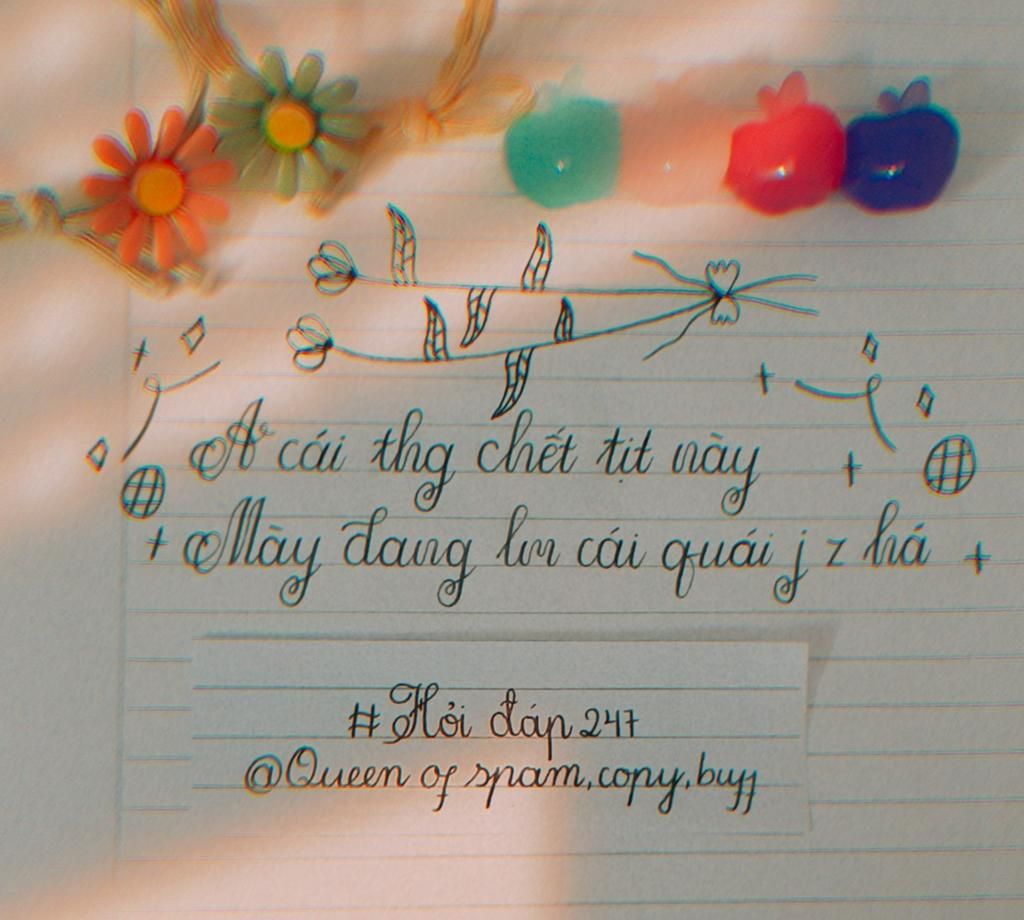 A cái thg chết tịt này
Mày đang lm cái quái j z há
#Hỏi đáp 247
@Queen of spam,copy,buff